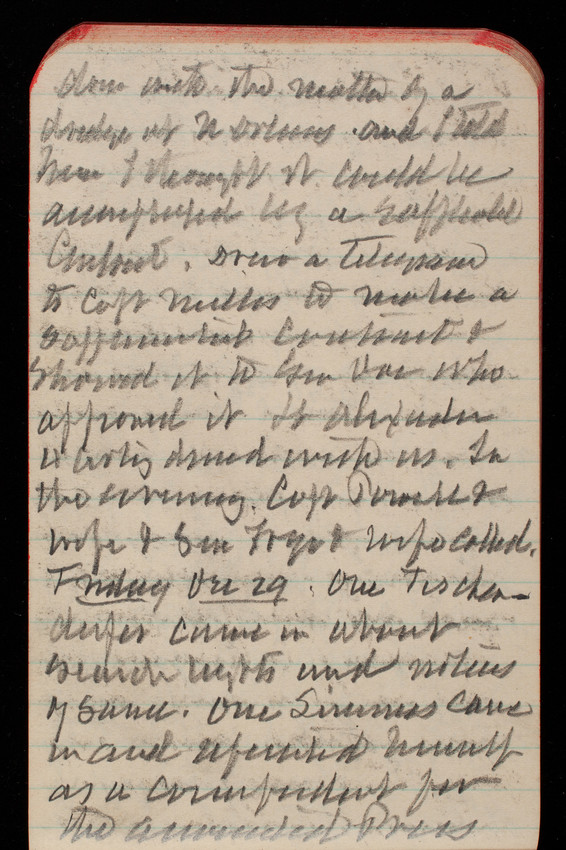 down with the matter by a
dredge at N Orleans and I told
him I thought it could be
accomplished by a
Contract. Drew a Telegram
to Capt Millis to make a
Supplimental Contract &
Showed it to Gen who
approved it Lt Alexander
& dined with us. In
the evening. Capt Powell &
wife & Gen & wife called.
Friday Dec 29. One Tischen-
derfer came in about
Search lights and notices
of same. One Simmons came
in and reported himself
as a correspondent for
the associated Press